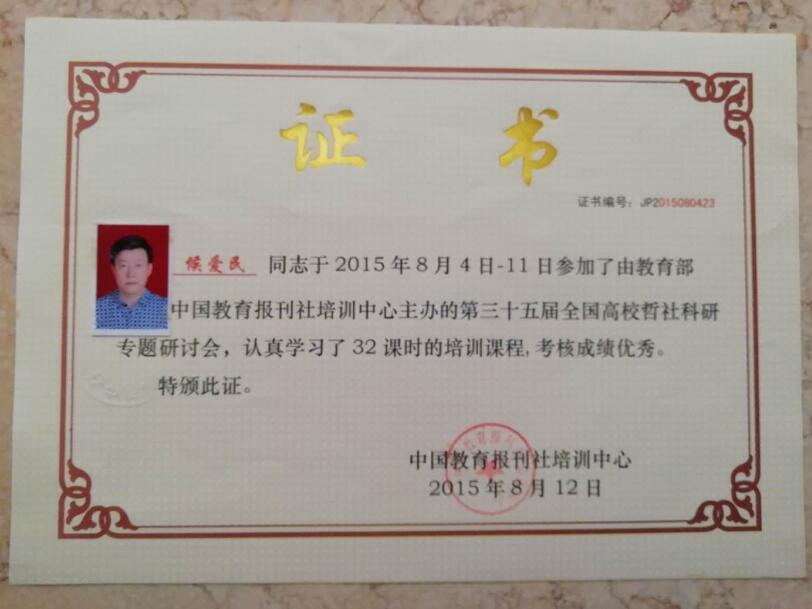 证书
证书编号：JP2015080423
候爱民 同志于 2015 年 8 月 4 日-11 日参加了由教育部
中国教育报刊社培训中心主办的第三十五届全国高校哲社科研
专题研讨会，认真学习了 32 课时的培训课程,考核成绩优秀。
特颁此证。
中国教育报刊社培训中心
2015 年 8 月 12 日